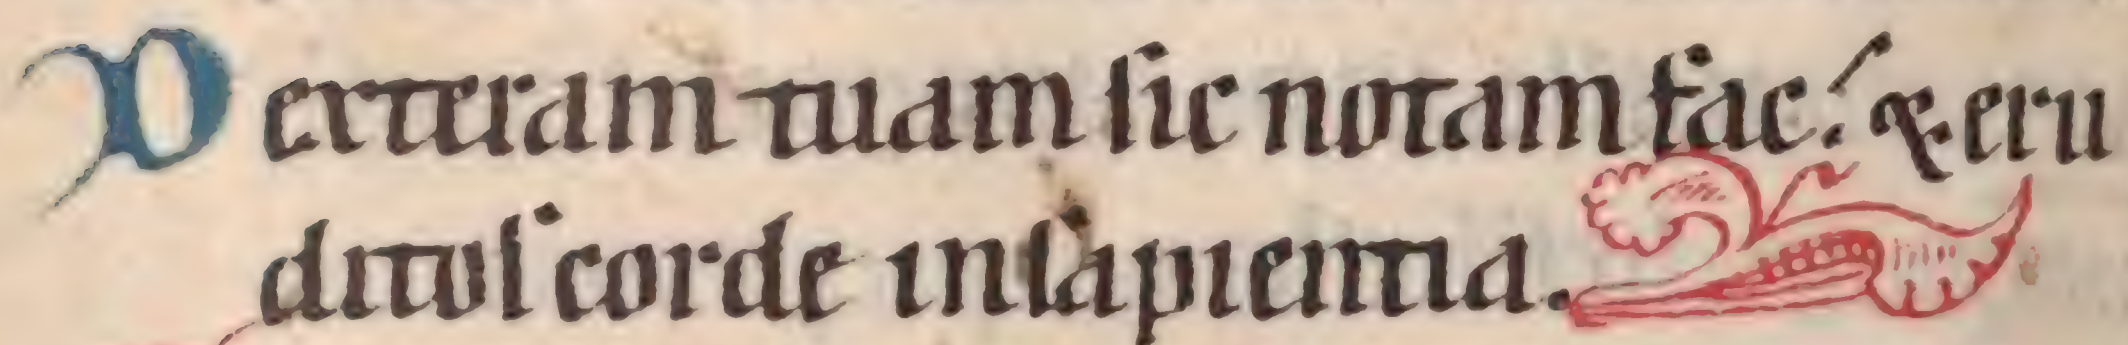 Dexteram tuam sic notam fac: & eru
ditos corde in sapientia.